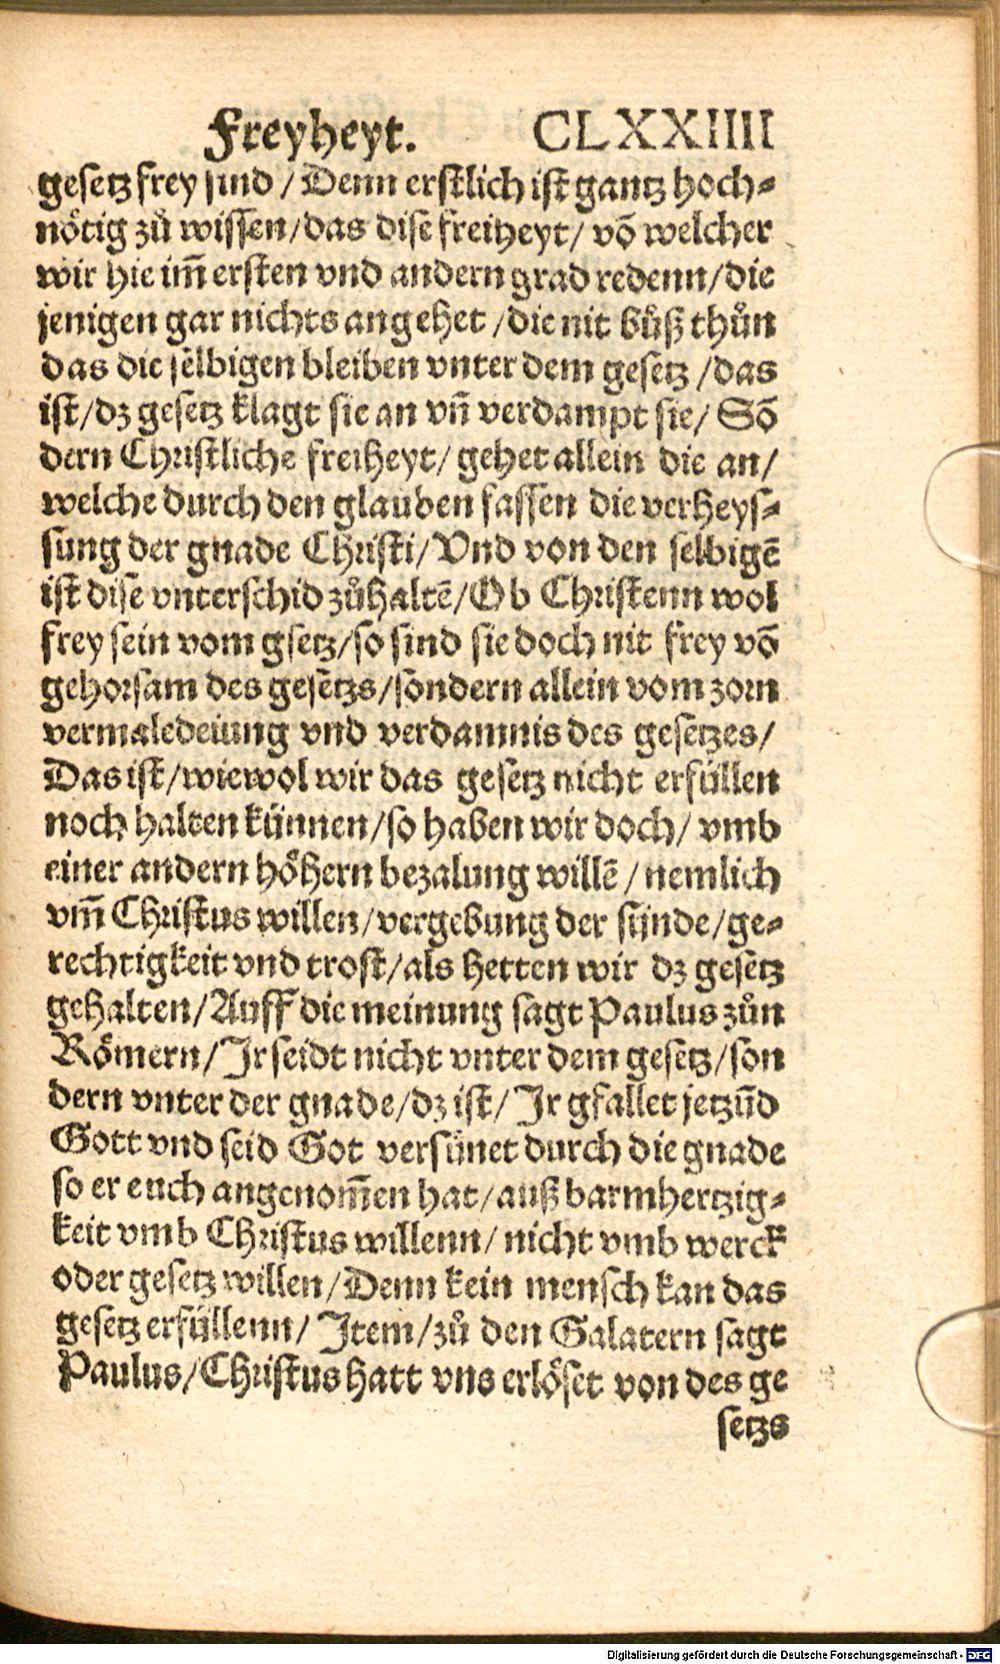 Freyheyt. CLXXIIII
gesetz frey sind / Denn erstlich ist gantz hoch⸗
nötig zů wissen/das dise freiheyt/ võ welcher
wir hie im̃ ersten vnd andern grad redenn/die
jenigen gar nichts angehet /die nit bůß thůn
das die selbigen bleiben vnter dem gesetz /das
ist/dz gesetz klagt sie an vñ verdampt sie/ Sõ
dern Christliche freiheyt/ gehet allein die an/
welche durch den glauben fassen die verheys⸗
sung der gnade Christi/ Vnd von den selbigẽ
ist dise vnterschid zůhaltẽ/Ob Christenn wol
frey sein vom gsetz/so sind sie doch nit frey võ
gehorsam des gesetzs/sondern allein vom zorn
vermaledeiung vnd verdamnis des gesetzes/
Das ist/wiewol wir das gesetz nicht erfüllen
noch halten künnen/so haben wir doch/ vmb
einer andern höhern bezalung willẽ /nemlich
vm̃ Christus willen/vergebung der sünde/ge⸗
rechtigkeit vnd trost/als hetten wir dz gesetz
gehalten/Auff die meinung sagt Paulus zůn
Römern/Ir seidt nicht vnter dem gesetz/son
dern vnter der gnade/dz ist/Ir gfallet jetzũd
Gott vnd seid Got versünet durch die gnade
so er euch angenom̃en hat/auß barmhertzig⸗
keit vmb Christus willenn/nicht vmb werck
oder gesetz willen/Denn kein mensch kan das
gesetz erfüllenn/ Item/zů den Galatern sagt
Paulus/Christus hatt vns erlöset von des ge
setzs
Digitalisierung gefördert durch die Deutsche Forschungsgemeinschaft - DFG